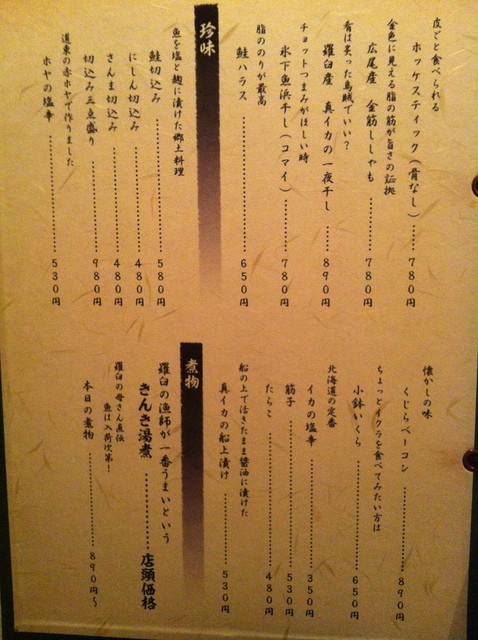 皮ごと食べられる
ホッケスティック(骨なし)……780円
金色に見える脂の筋が旨さの証拠
広尾産 金筋ししゃも……780円
肴は炙った烏賊でいい?
羅臼産 真イカの一夜干し……890円
チョットつまみがほしい時
氷下魚浜干し(コマイ)……780円
脂ののりが最高
鮭ハラス……650円
珍味
魚を塩と麹に漬けた郷土料理
鮭切込み……580円
にしん切込み……480円
さんま切込み……480円
切込み三点盛り……980円
道東の赤ホヤで作りました
ホヤの塩辛……530円
懐かしの味
くじらベーコン……890円
ちょっとイクラを食べてみたい方は
小鉢いくら……650円
北海道の定番
イカの塩辛……350円
筋子……530円
たらこ……480円
船の上で活きたまま醤油に漬けた
真イカの船上漬け……530円
煮物
羅臼の漁師が一番うまいという
きんき湯煮……店頭価格
羅臼の母さん直伝
魚は入荷次第!
本日の煮物……890円~